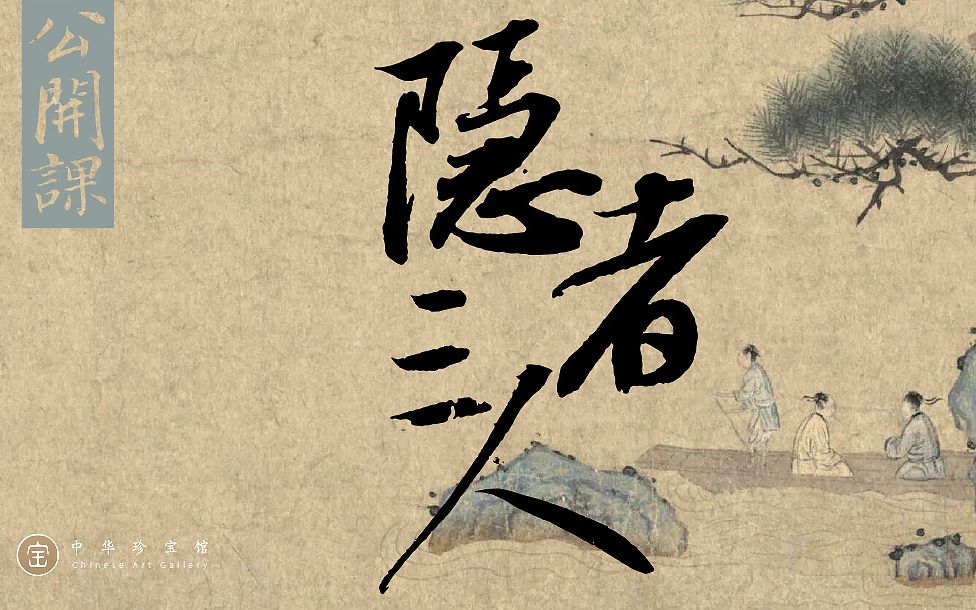 公開課
隐者
三人
中华珍宝馆
Chinese Art Gallery
宝